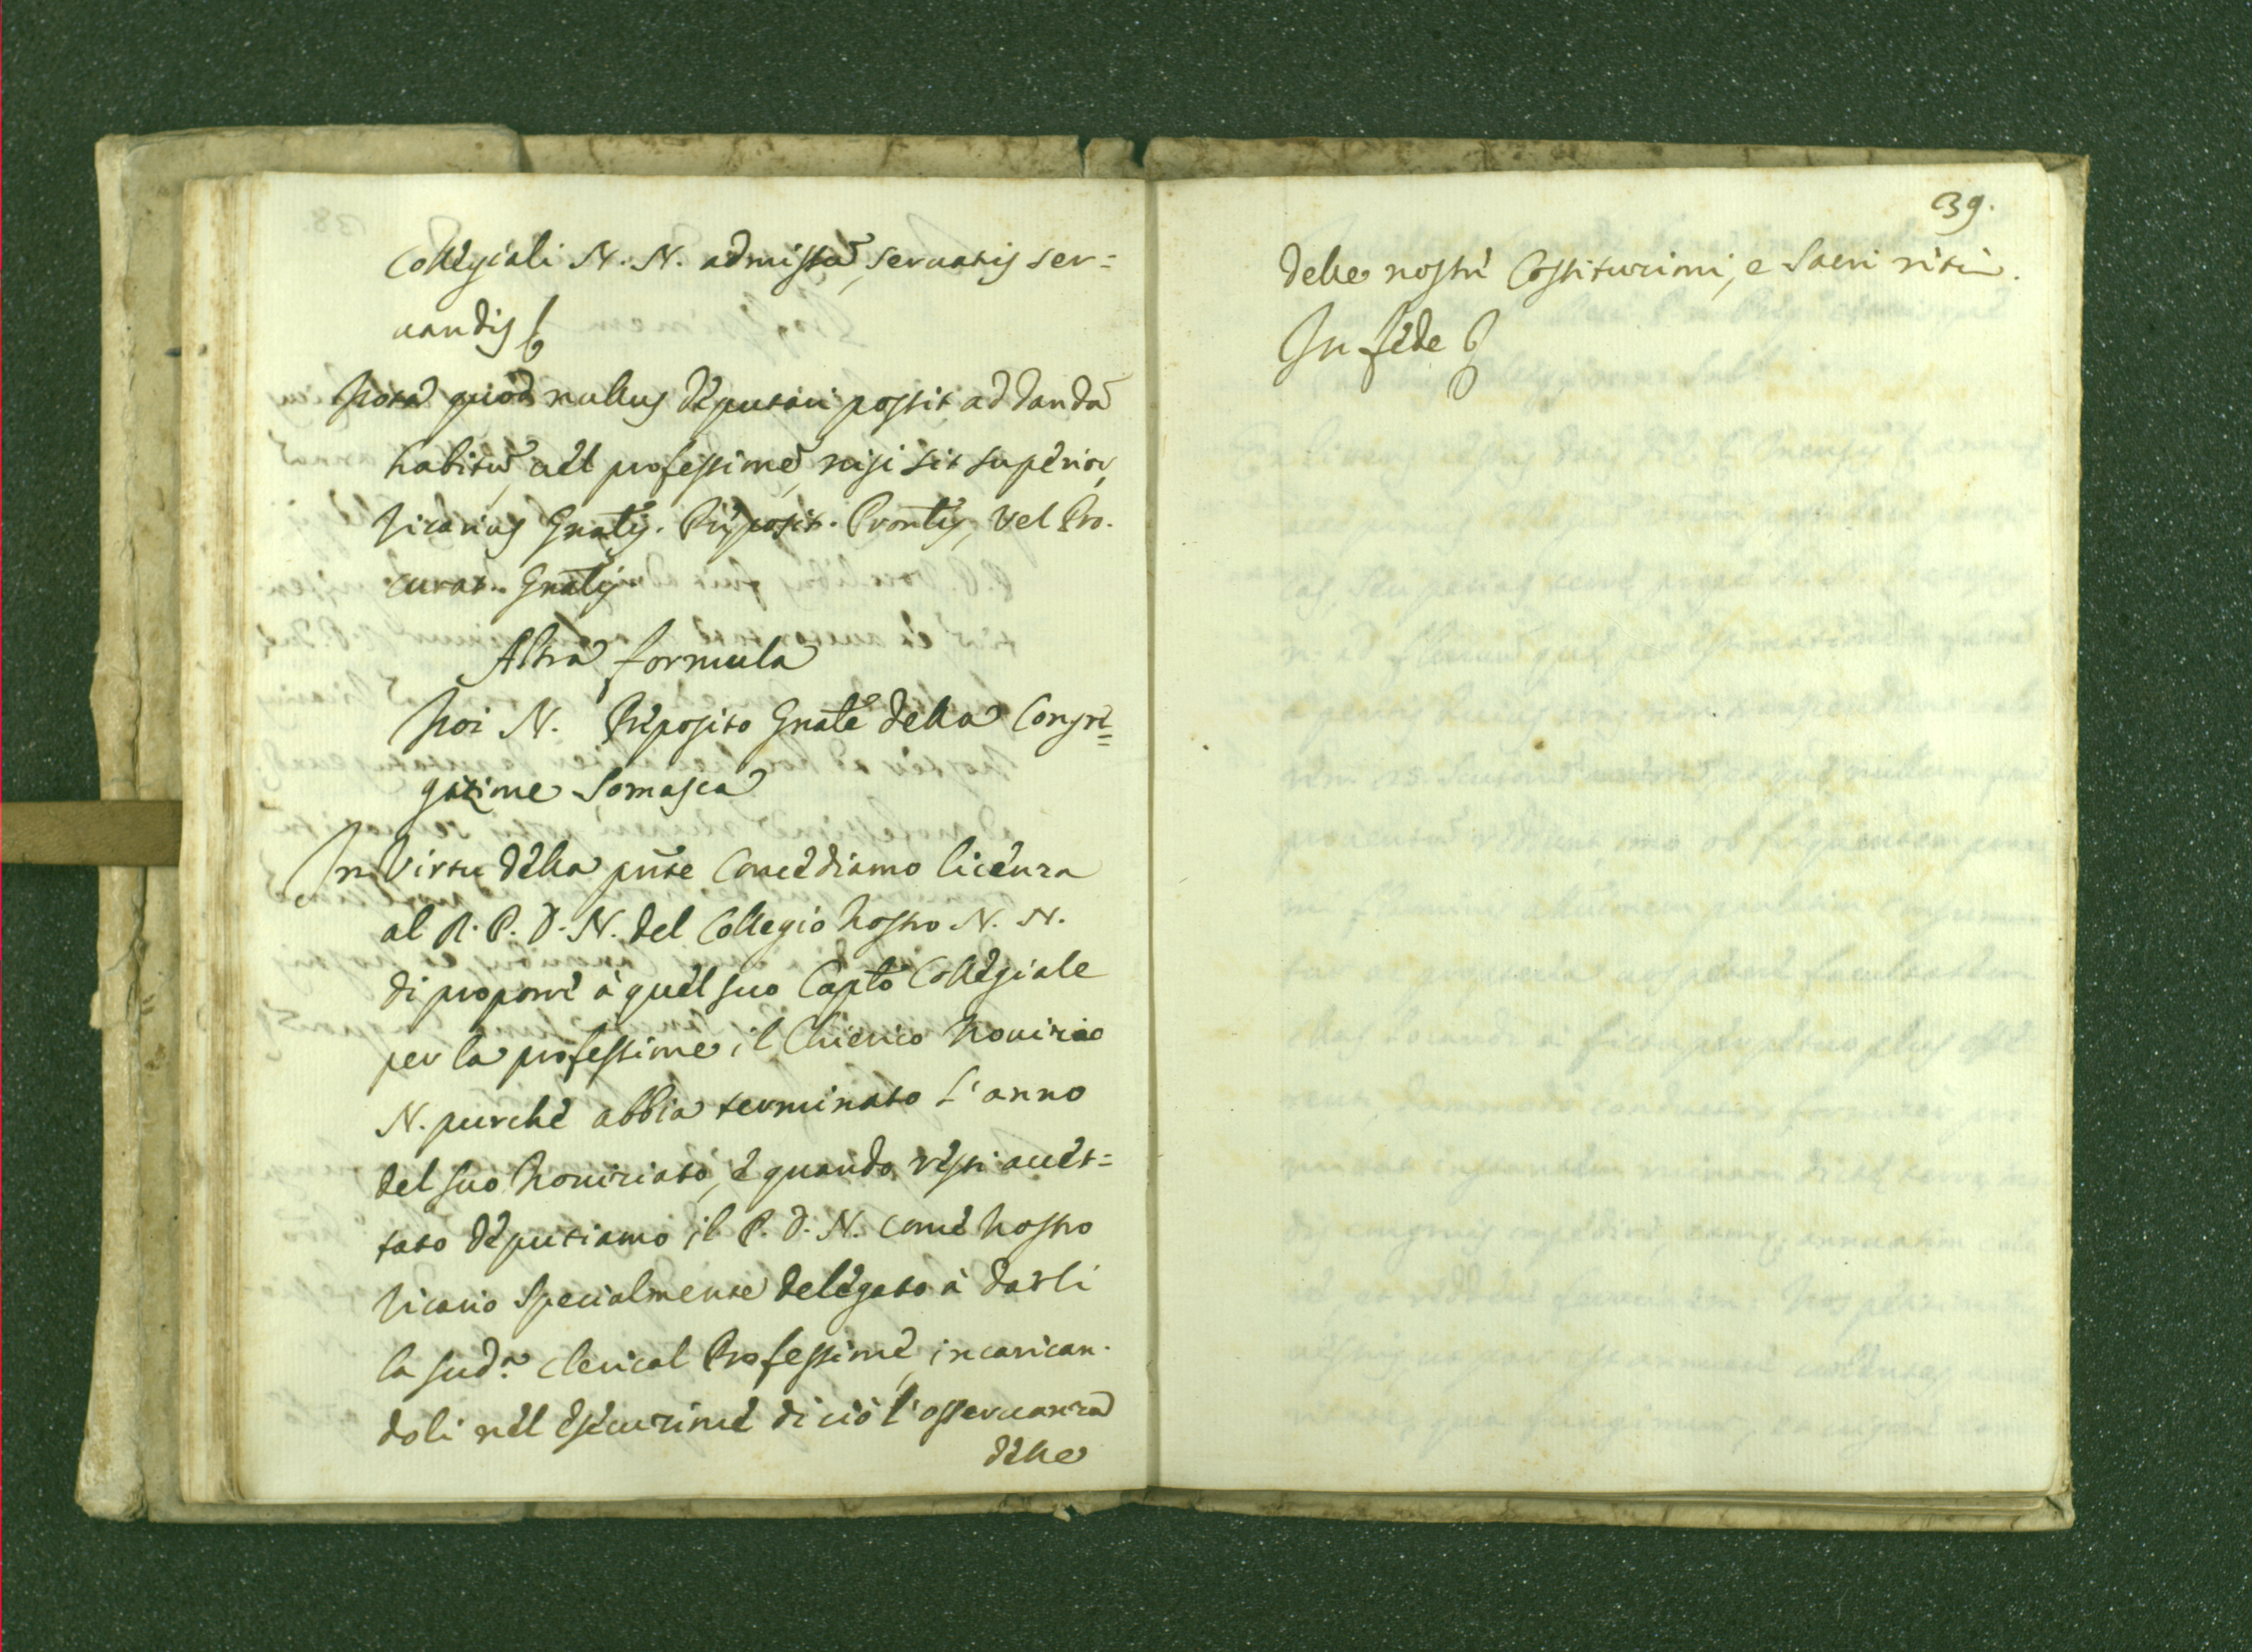 Collegiali N. N. admissũ, servatis ser=
uandis &
Nota quod nullus deputari possit ad dandũ
habitũ, uel professionẽ, nisi sit superior,
Vicarius Gnãlis. Præposit. Provnlis, vel Pro.
curat. Gnãlis.
Altra formula
Noi N. Preposito Gnãle della Congre=
gazione Somasca
In Virtu della pñte Concediamo licenza
al R. P. D. N. del Collegio Nostro N. N.
di proporre à quel suo Capto Collegiale
per la professione il Chierico Novizio
N. purche abbia terminato l'anno
del suo Noviziato, e quando resti accet=
tato deputiamo il P. D. N. come Nostro
Vicario Specialmente delegato à darli
la sud.ª clerical Professione, incarican.
doli nel esecuzione di ciò l'osservanza
delle
39.
delle nostre Costituzioni, e Sacri riti.
In fede &